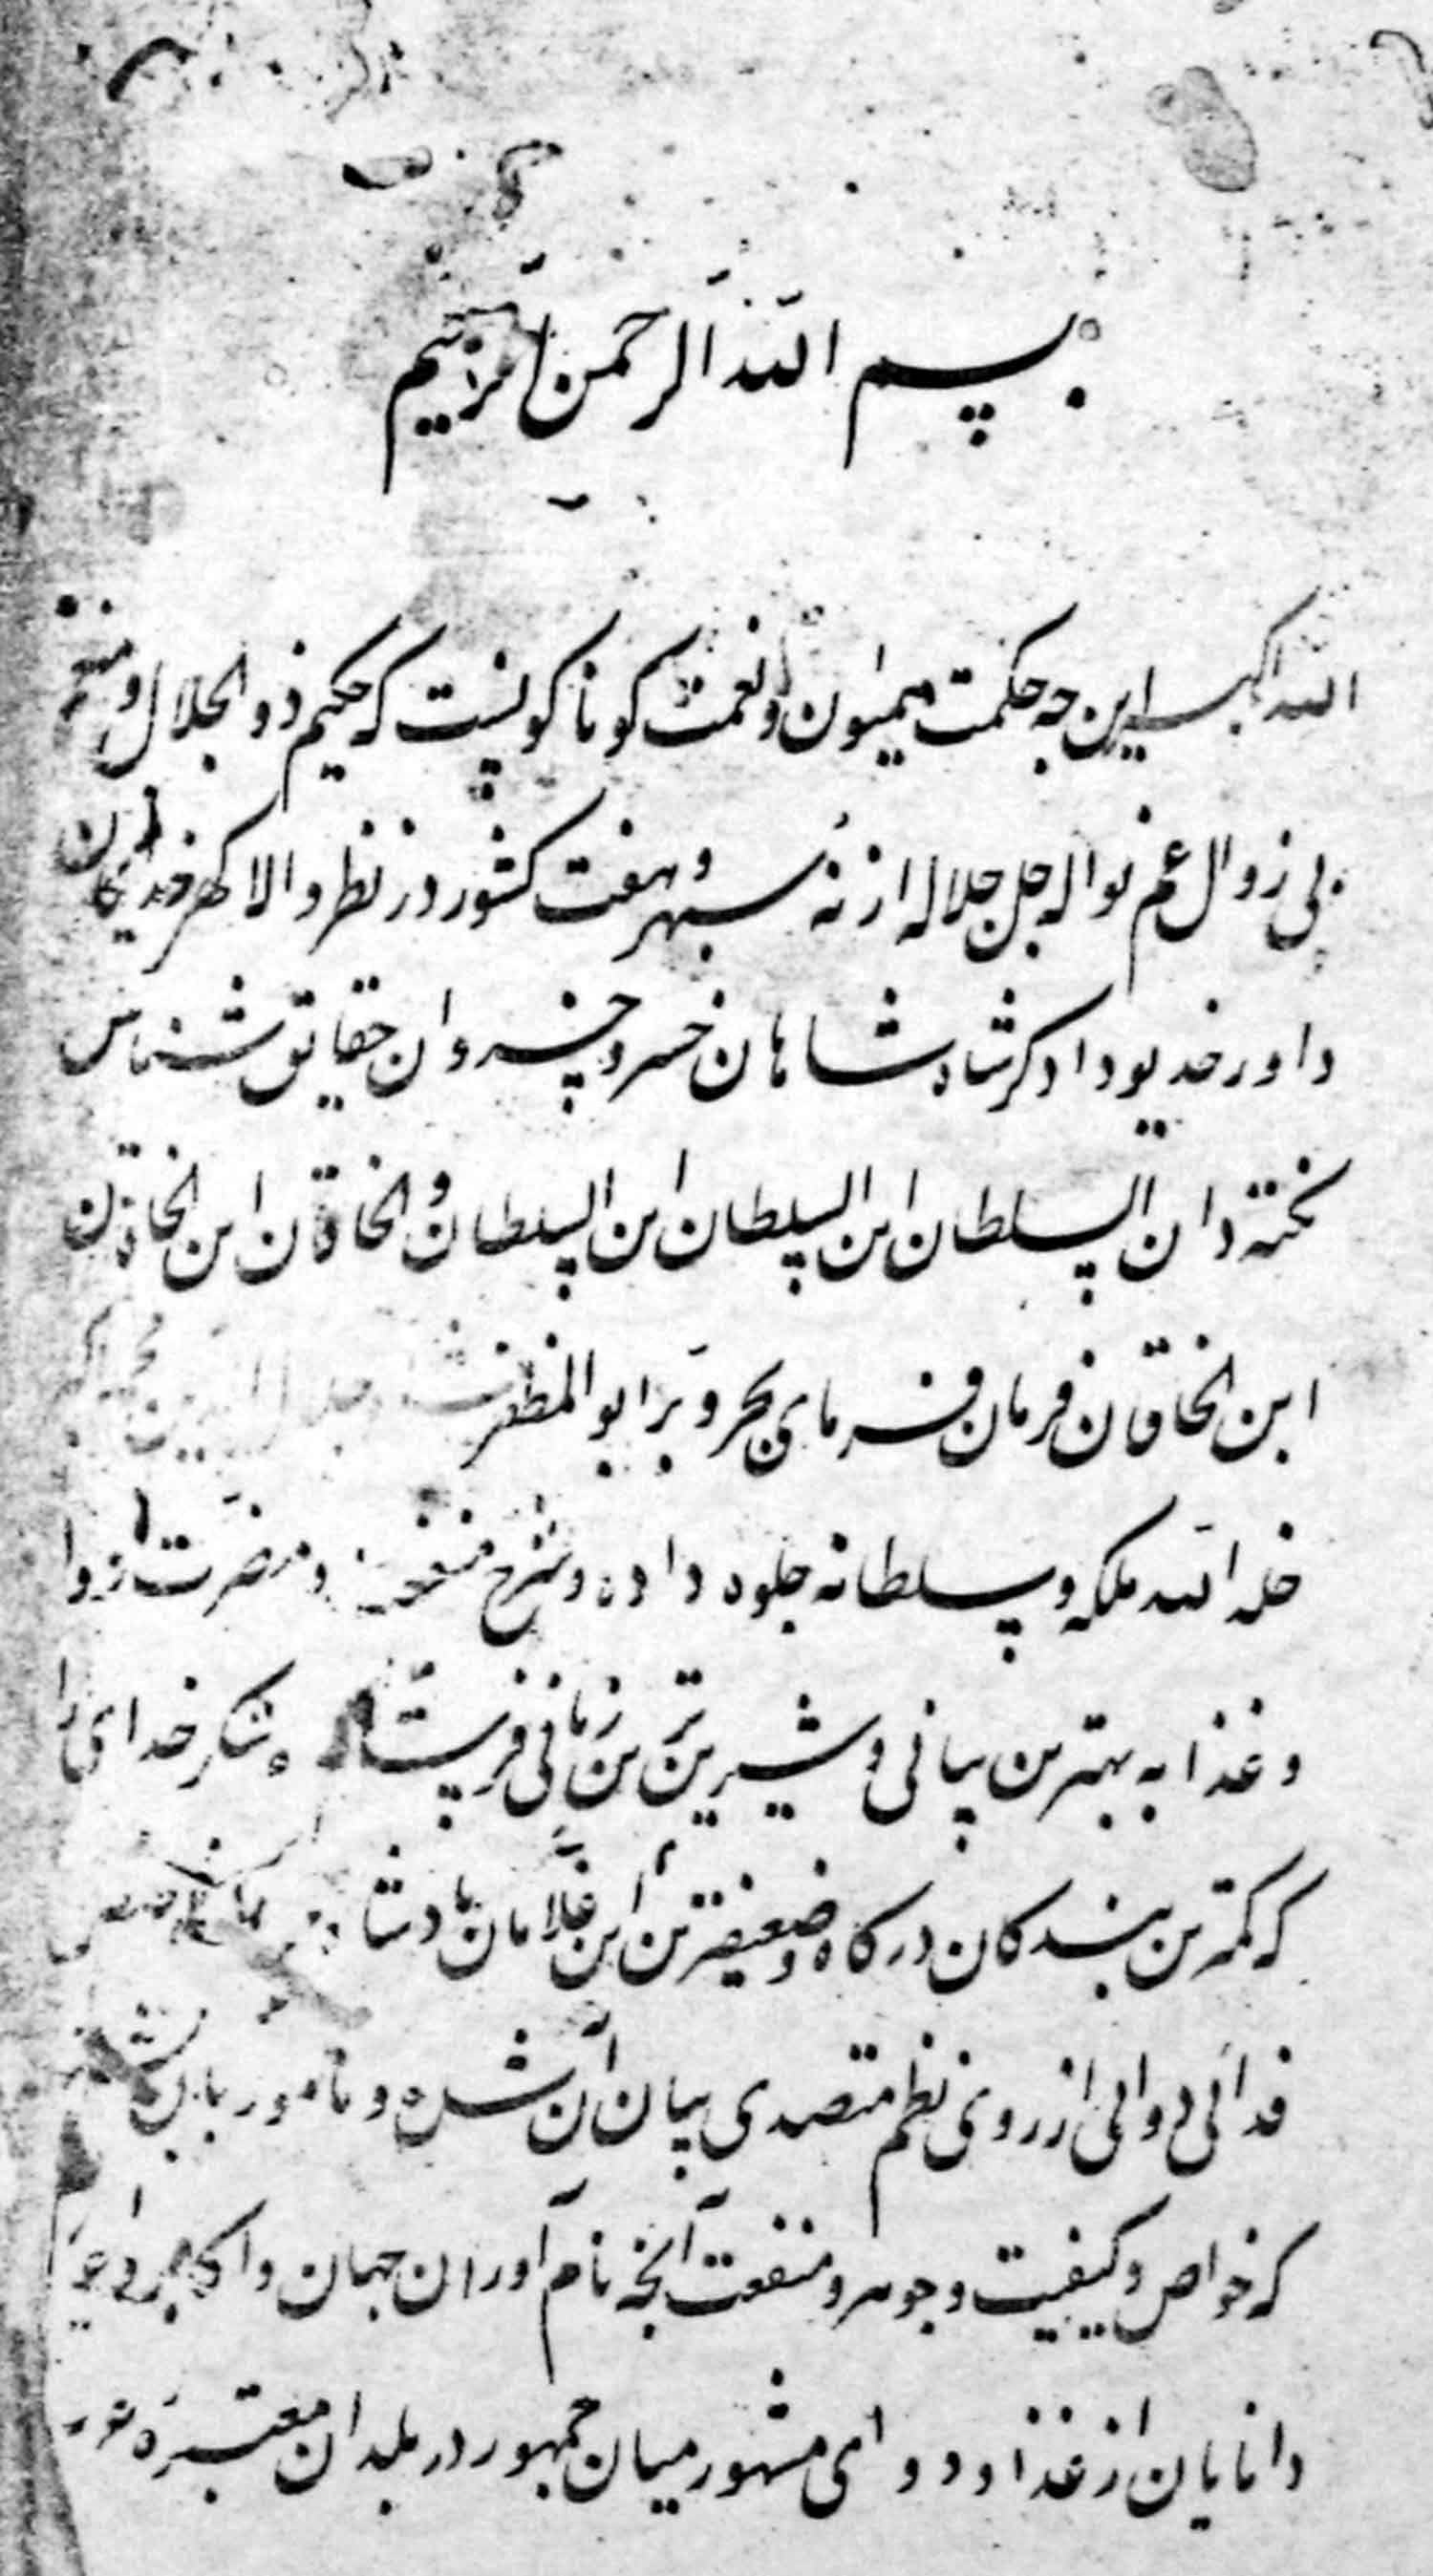 بسم الله الرحمن الرحیم
الله اکبر این چه حکمت میمون و نعمت کوناکونیست که حکیم ذوالجلال و منعم
بی زوال عم نواله جل جلاله از نه سپهر و هفت کشور در نظر والا کهر خدایکان
داور خدیو دادکر شاه شاهان خسرو خسروان حقایق شناس
نکته دان السلطان ابن السلطان ابن السلطان و الخاقان ابن الخاقان
ابن الخاقان فرمان فرمای بحر و بر ابوالمظفر جلال الدین محمد اکبر
خلد الله ملکه و سلطانه جلوه داده و شرح منفعت و مضرت دوا
و غذا به بهترین بیانی و شیرین ترین زبانی فرستاد و شکر خدای را
که کمترین بندکان درکاه و ضعیفترین این غلامان پادشاه
فدائی دوائی از روی نظم متصدی بیان آن شده و مامور بامر
که خواص و کیفیت و جوهر و منفعت آنچه نام آوران جهان و اکابر
دانایان از غذا و دوای مشهور میان جمهور در بلدان معتبره